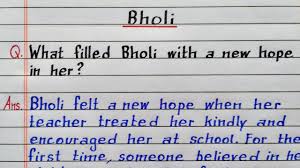 Bholi
Q. What filled Bholi with a new hope
in her?
Ans. Bholi felt a new hope when her
teacher treated her kindly and
encouraged her at school. For the
first time, someone believed in